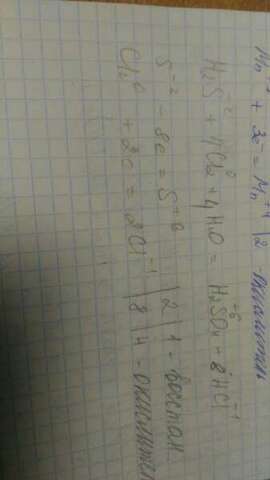 Mn⁺⁷ + 3e⁻ = Mn⁺⁴ | 2 - окислитель
H₂S⁻² + 4Cl₂⁰ + 4H₂O = H₂S⁺⁶O₄ + 8HCl⁻¹
S⁻² - 8e = S⁺⁶ | 2 | 1 - восстан
Cl₂⁰ + 2e = 2Cl⁻¹ | 8 | 4 - окислител